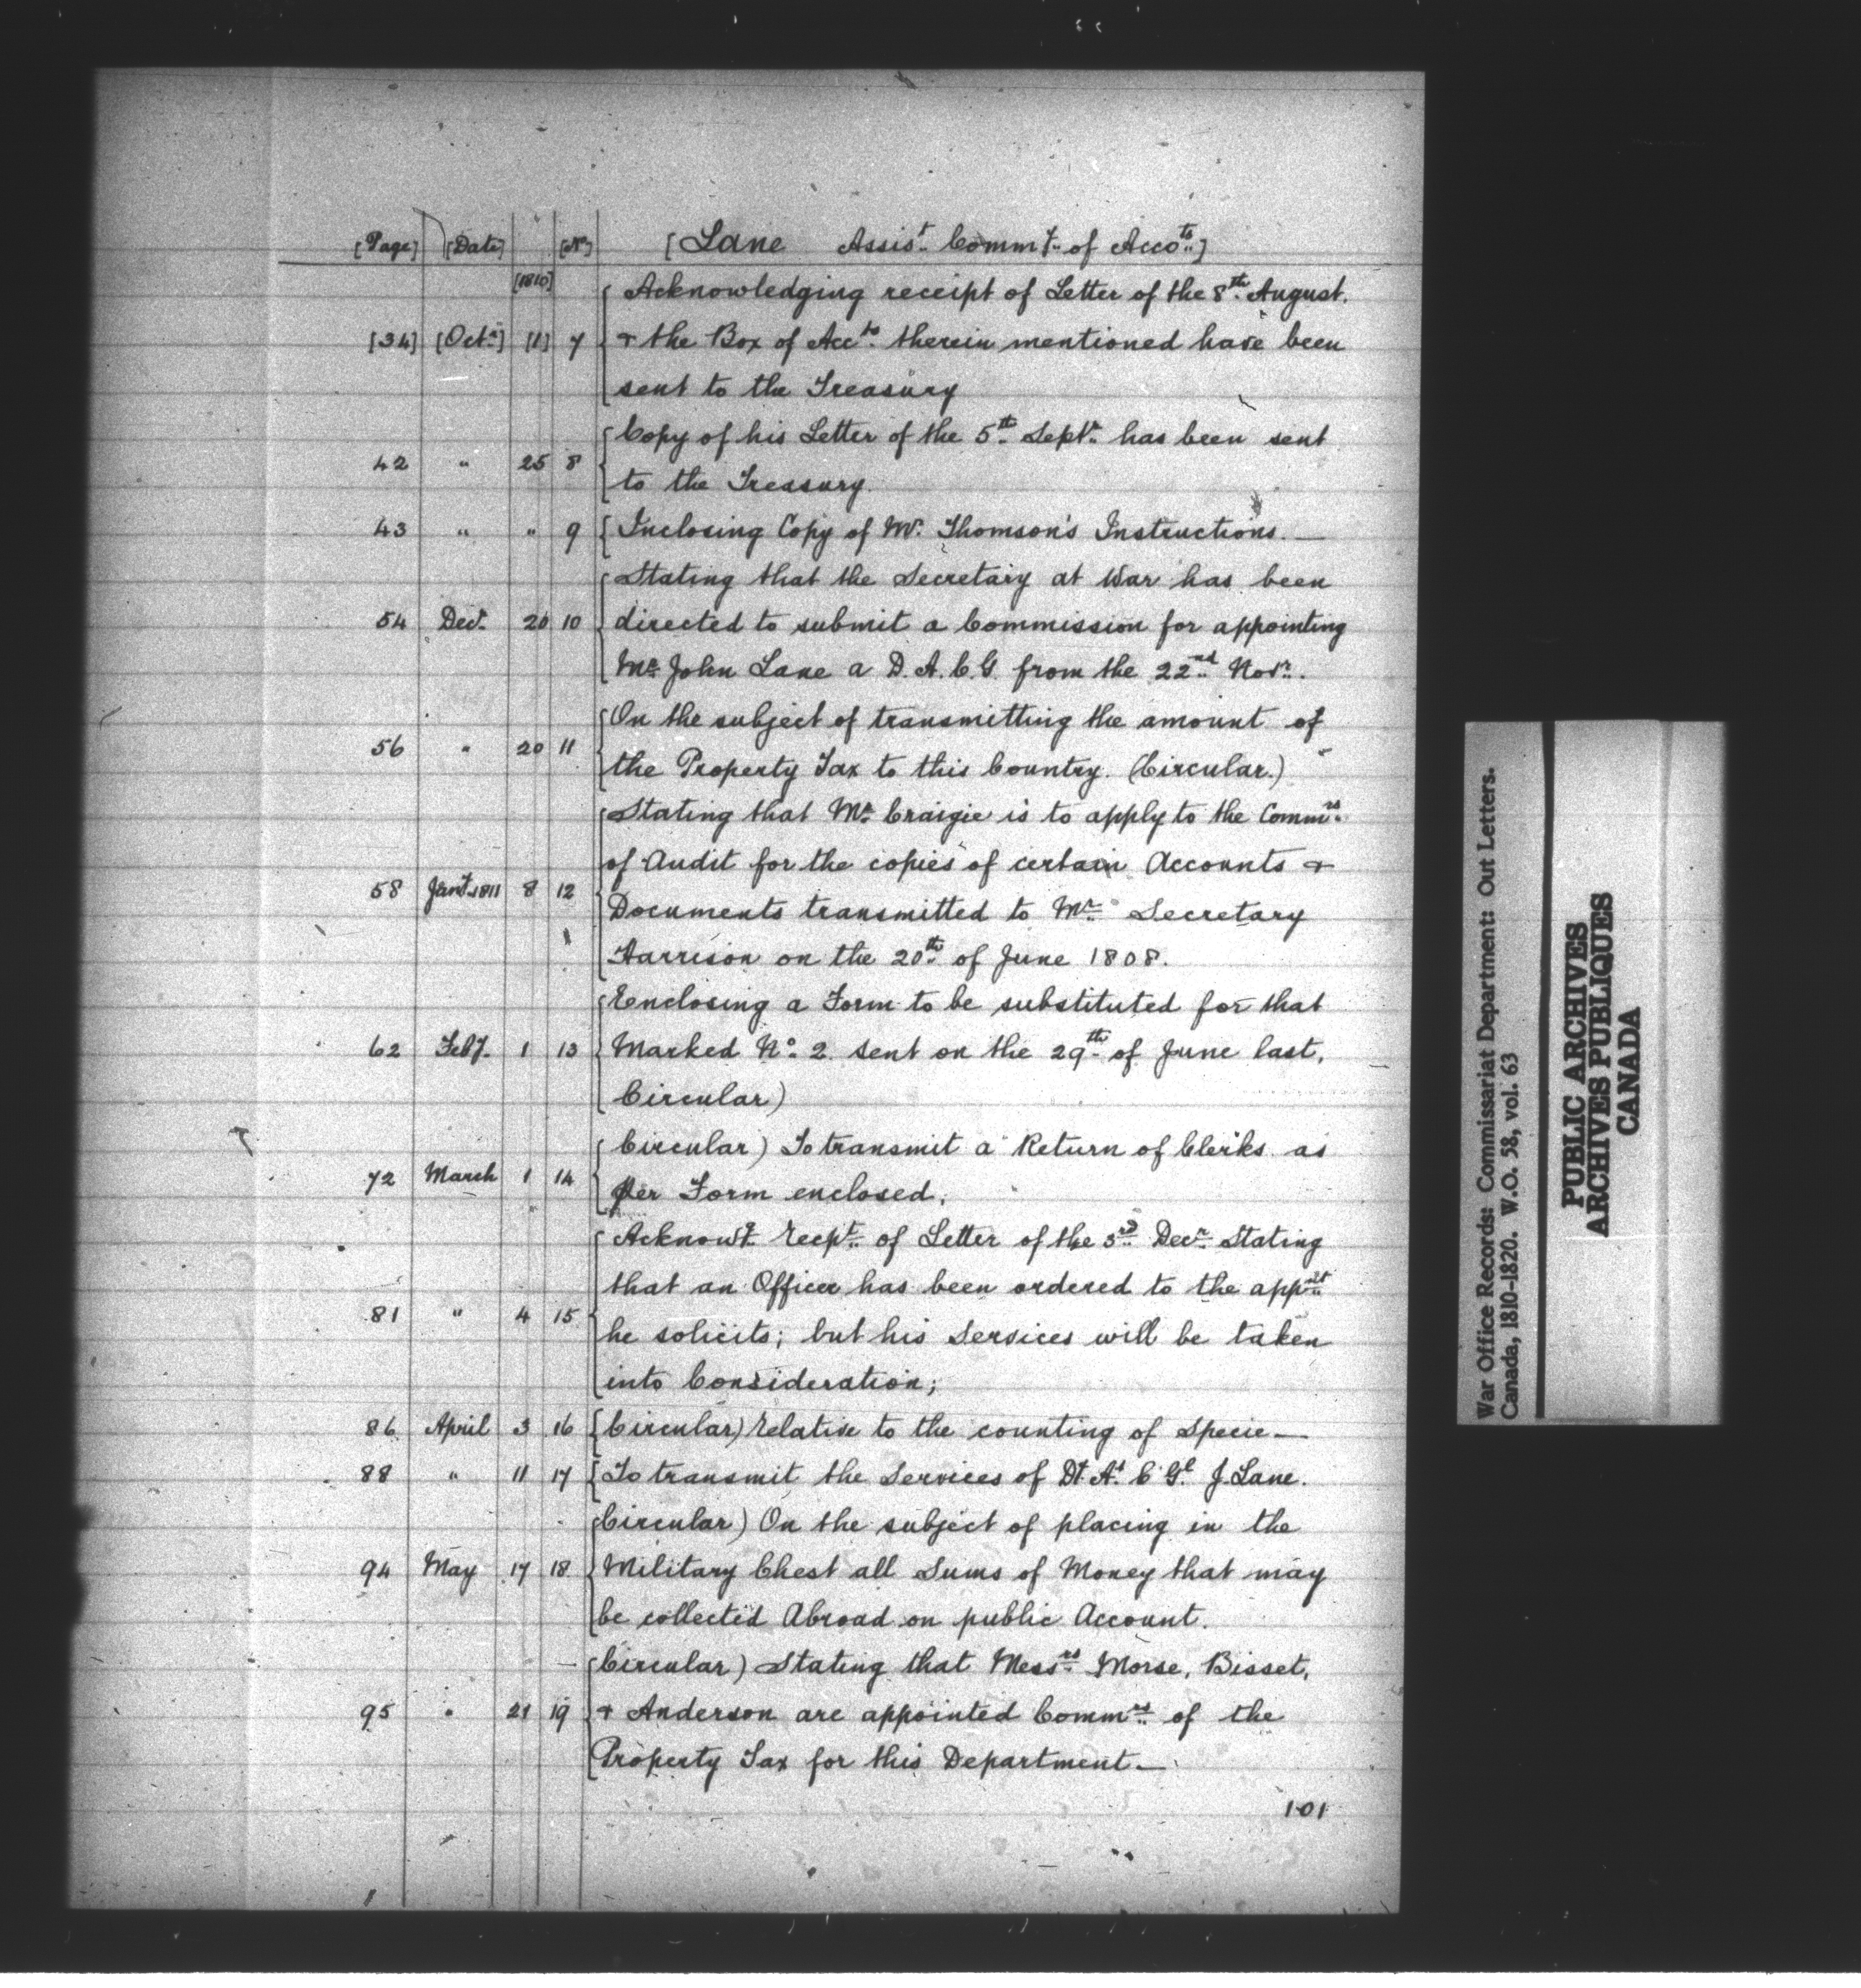 [Page] [Date] [No] [Lane Assist. Commy. of Accots.]
[1810]
Acknowledging receipt of Letter of the 8th. August.
[34] [Octr.] [1] 7 + the Box of Accts. therein mentioned have been
sent to the Treasury
Copy of his Letter of the 5th. Septr. has been sent
42 " 25 8
to the Treasury.
43 " " 9 Inclosing Copy of Mr. Thomson's Instructions. —
Stating that the Secretary at War has been
54 Decr. 20 10 directed to submit a Commission for appointing
Mr. John Lane a D. A. C. G. from the 22nd. Novr.
On the subject of transmitting the amount of
56 " 20 11
the Property Tax to this Country. (Circular.)
Stating that Mr. Craigie is to apply to the Commrs.
of Audit for the copies of certain Accounts +
58 Jany. 1811 8 12
Documents transmitted to Mr. Secretary
Harrison on the 20th. of June 1808.
Enclosing a Form to be substituted for that
62 Feby. 1 13 Marked No. 2 sent on the 29th. of June last,
Circular)
Circular) To transmit a Return of Clerks as
72 March 1 14
per Form enclosed.
Acknowg. recept. of Letter of the 3rd. Decr. Stating
that an Officer has been ordered to the appmt.
81 " 4 15
he solicits; but his Services will be taken
into Consideration;
86 April 3 16 Circular) relative to the counting of Specie —
88 " 11 17 To transmit the Services of Dt. At. C Gl. J. Lane.
Circular) On the subject of placing in the
94 May 17 18 Military Chest all Sums of Money that may
be collected Abroad on public Account.
Circular) Stating that Messrs. Morse, Bisset,
95 " 21 19 + Anderson are appointed Commrs. of the
Property Tax for this Department —
101
War Office Records: Commissariat Department: Out Letters.
Canada, 1810-1820. W.O. 58, vol. 63
PUBLIC ARCHIVES
ARCHIVES PUBLIQUES
CANADA